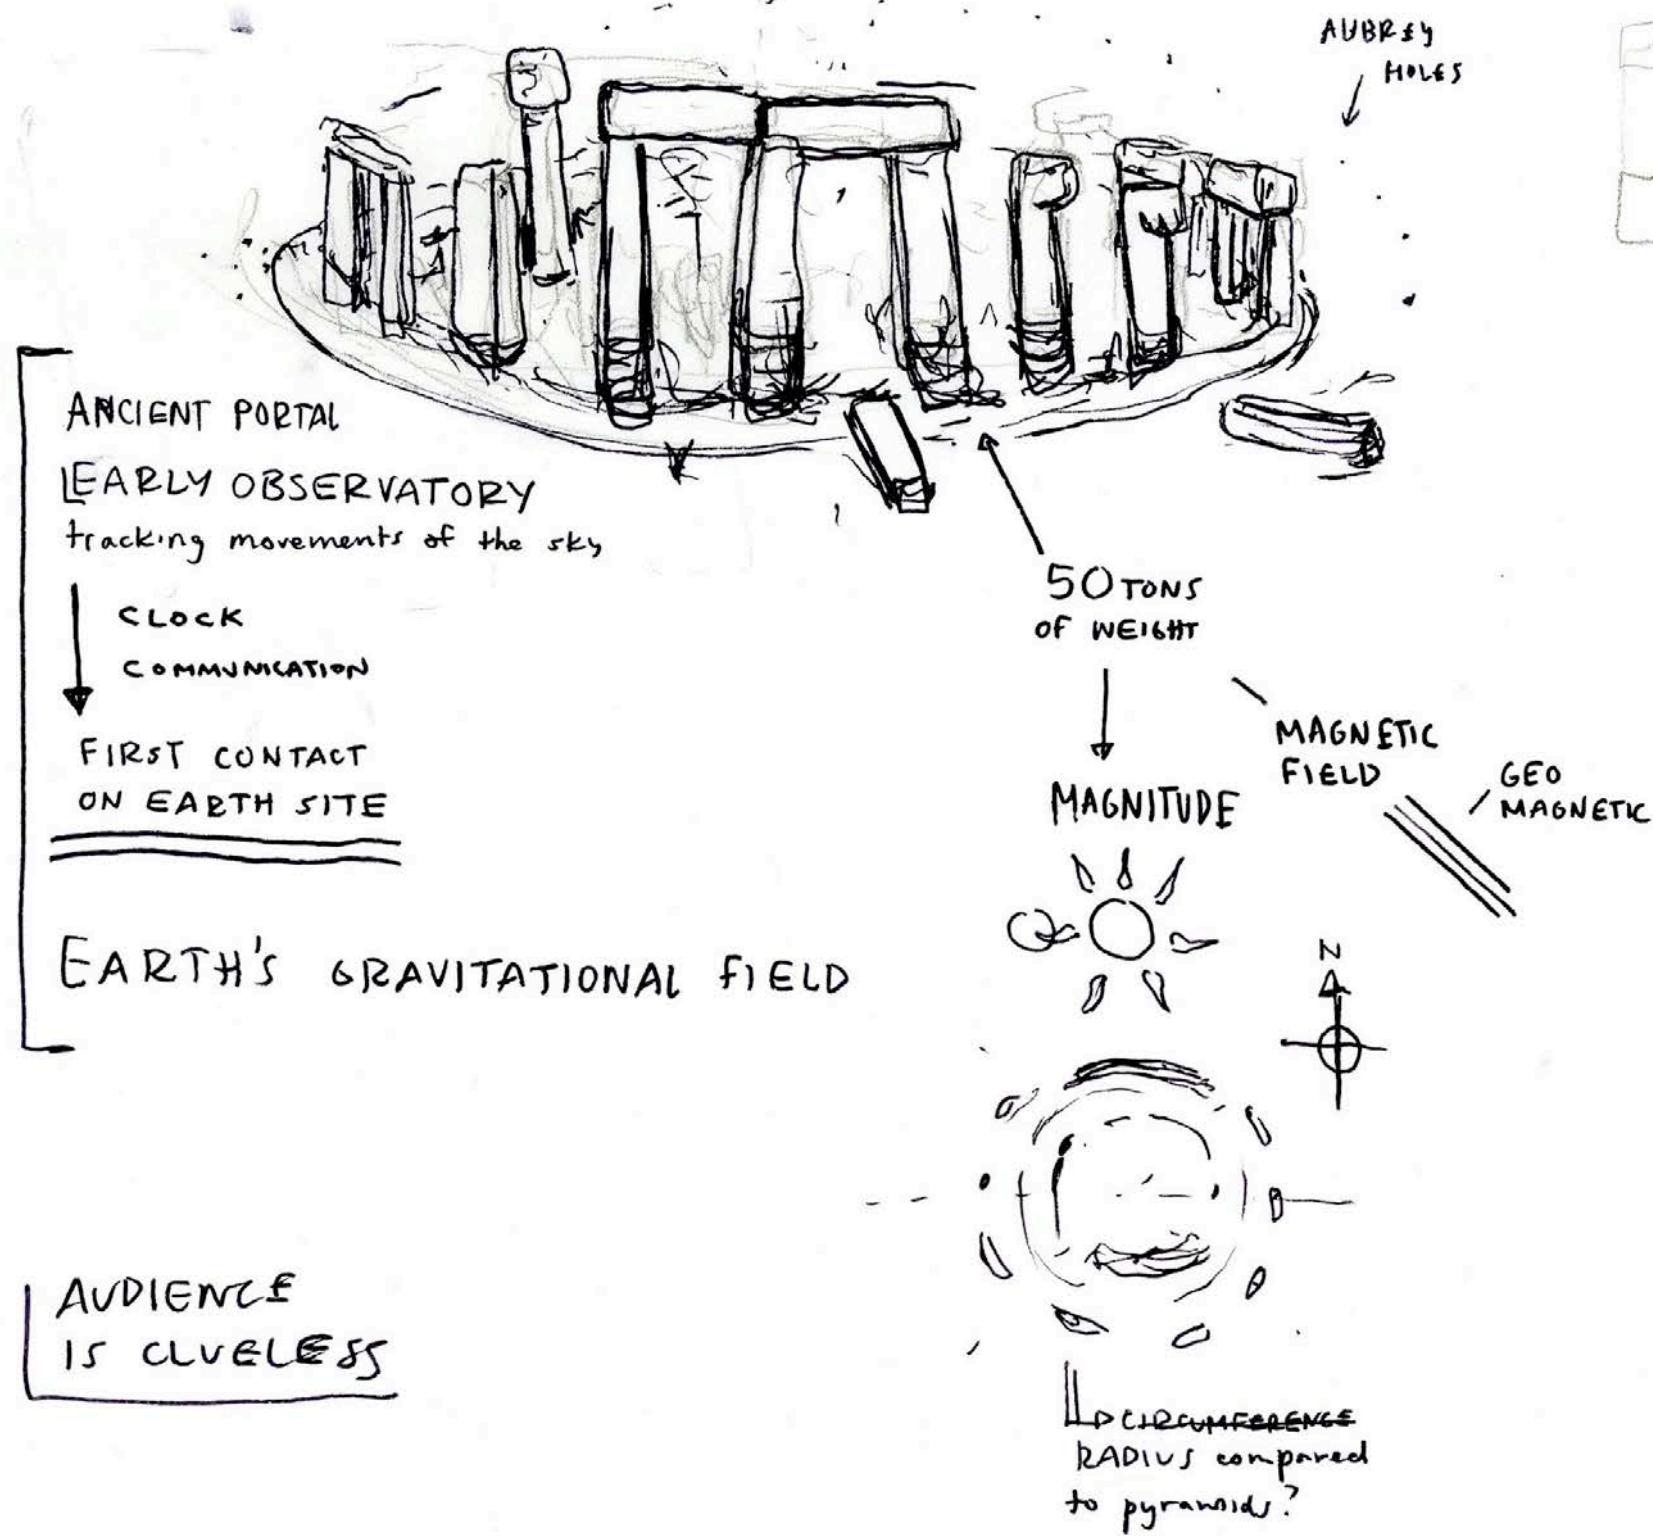 AUBREY
HOLES
ANCIENT PORTAL
EARLY OBSERVATORY
tracking movements of the sky
CLOCK
COMMUNICATION
FIRST CONTACT
ON EARTH SITE
EARTH'S GRAVITATIONAL FIELD
AUDIENCE
IS CLUELESS
50 TONS
OF WEIGHT
MAGNETIC
FIELD
GEO
MAGNETIC
MAGNITUDE
N
CIRCUMFERENCE
RADIUS compared
to pyramids?